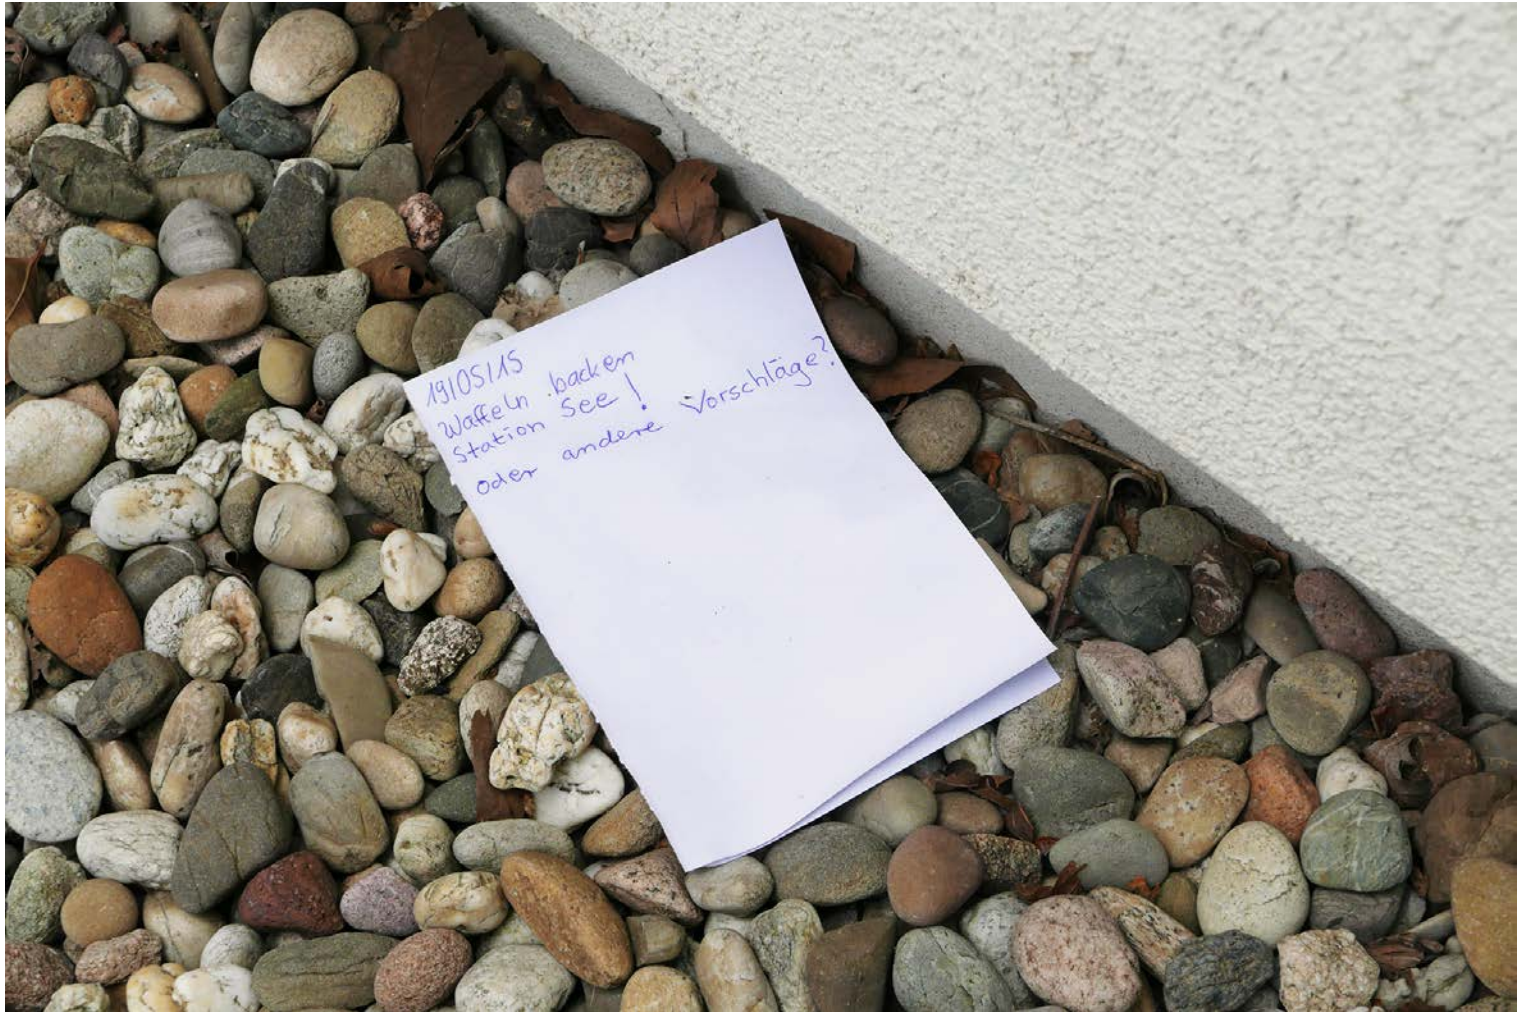 19/05/15
Waffeln backen
Station See!
oder andere Vorschläge?